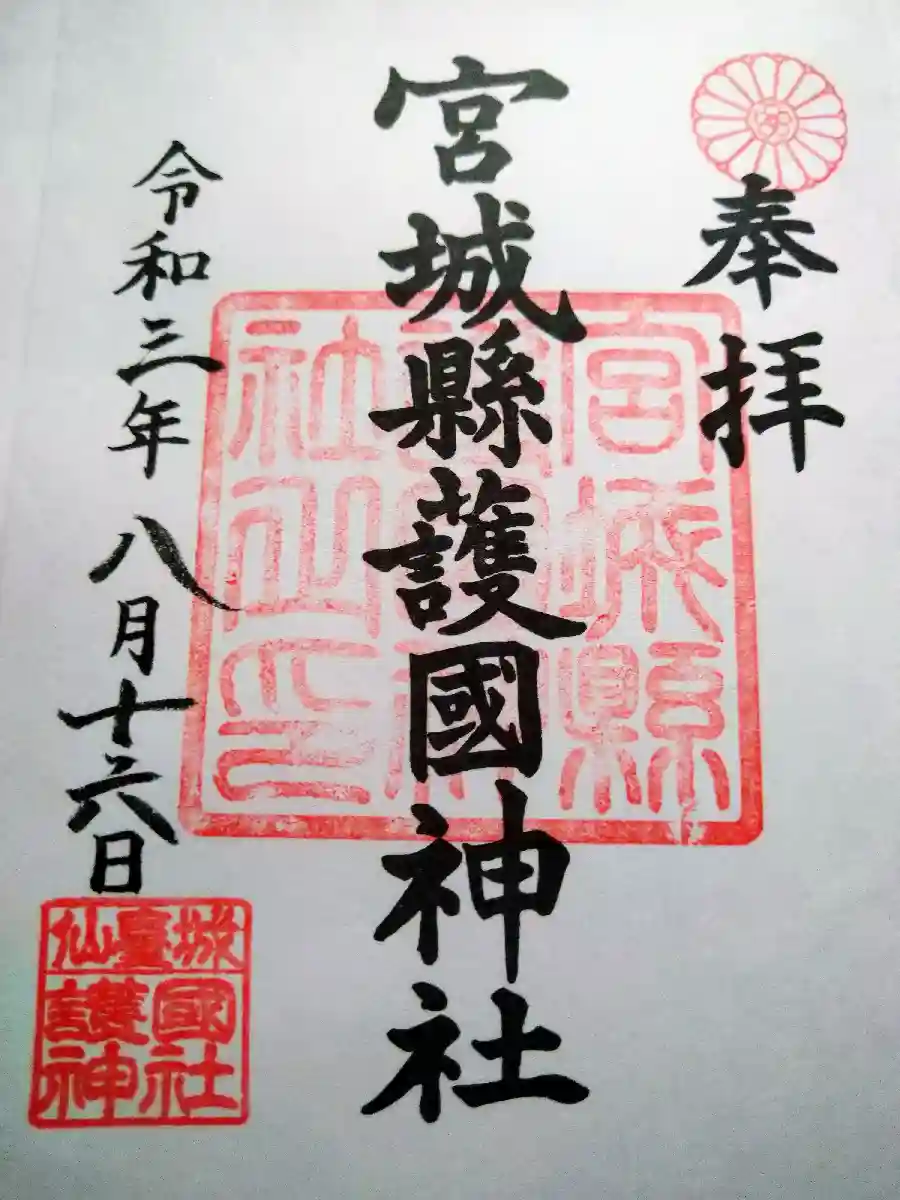 奉拝
宮城縣護國神社
令和三年八月十六日
宮城縣
社山印
仙臺城
護國
神社